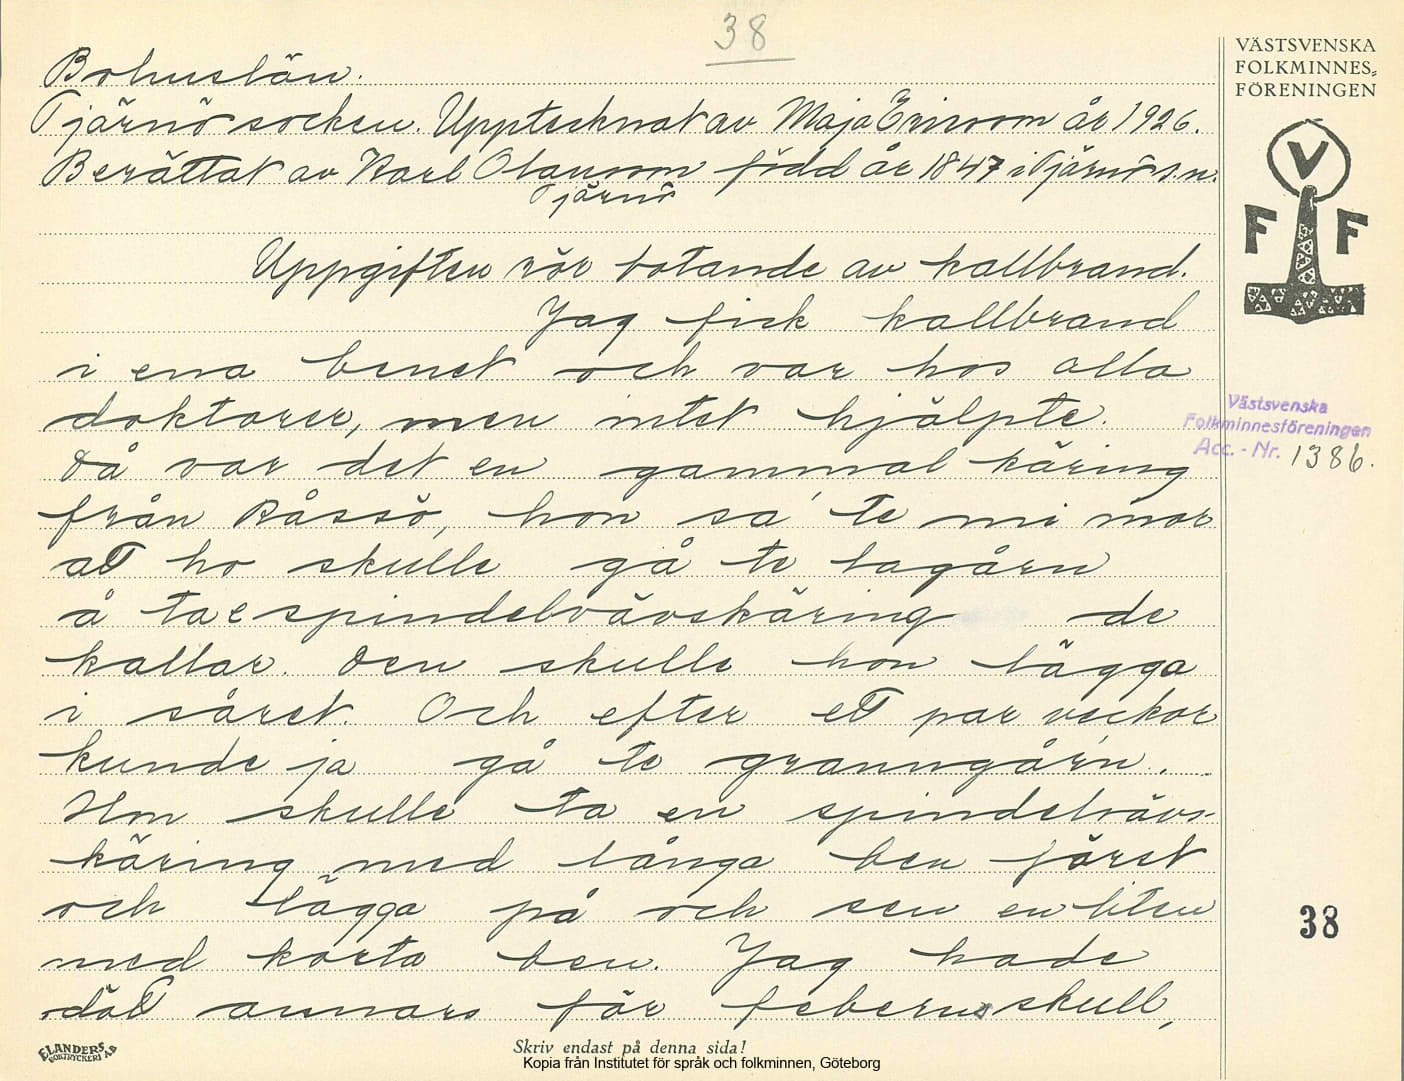 38
VÄSTSVENSKA
FOLKMINNES-
FÖRENINGEN
V
F F
Bohuslän.
Tjärnö socken. Upptecknat av Maja Ericsson år 1926.
Berättat av Karl Olausson född år 1847 i Tjärnö s.n.
Tjärnö
Uppgiften rör botande av kallbrand.
Jag fick kallbrand
i ena benet och var hos alla
doktorer, men intet hjälpte.
Då var det en gammal käring
från Råssö, hon sa' te mi mor
att ho skulle gå te lagårn
å ta e spindelvävskäring de
kallar. Den skulle hon lägga
i såret. Och efter ett par veckor
kunde ja gå te granngår'n.
Hon skulle ta en spindelvävs-
käring med långa ben först
och lägga på och sen en liten
med korta ben. Jag hade
dött annars för feberns skull,
Västsvenska
Folkminnesföreningen
Acc. - Nr. 1386.
38
ELANDERS
BOKTRYCKERI A.B
Skriv endast på denna sida!
Kopia från Institutet för språk och folkminnen, Göteborg